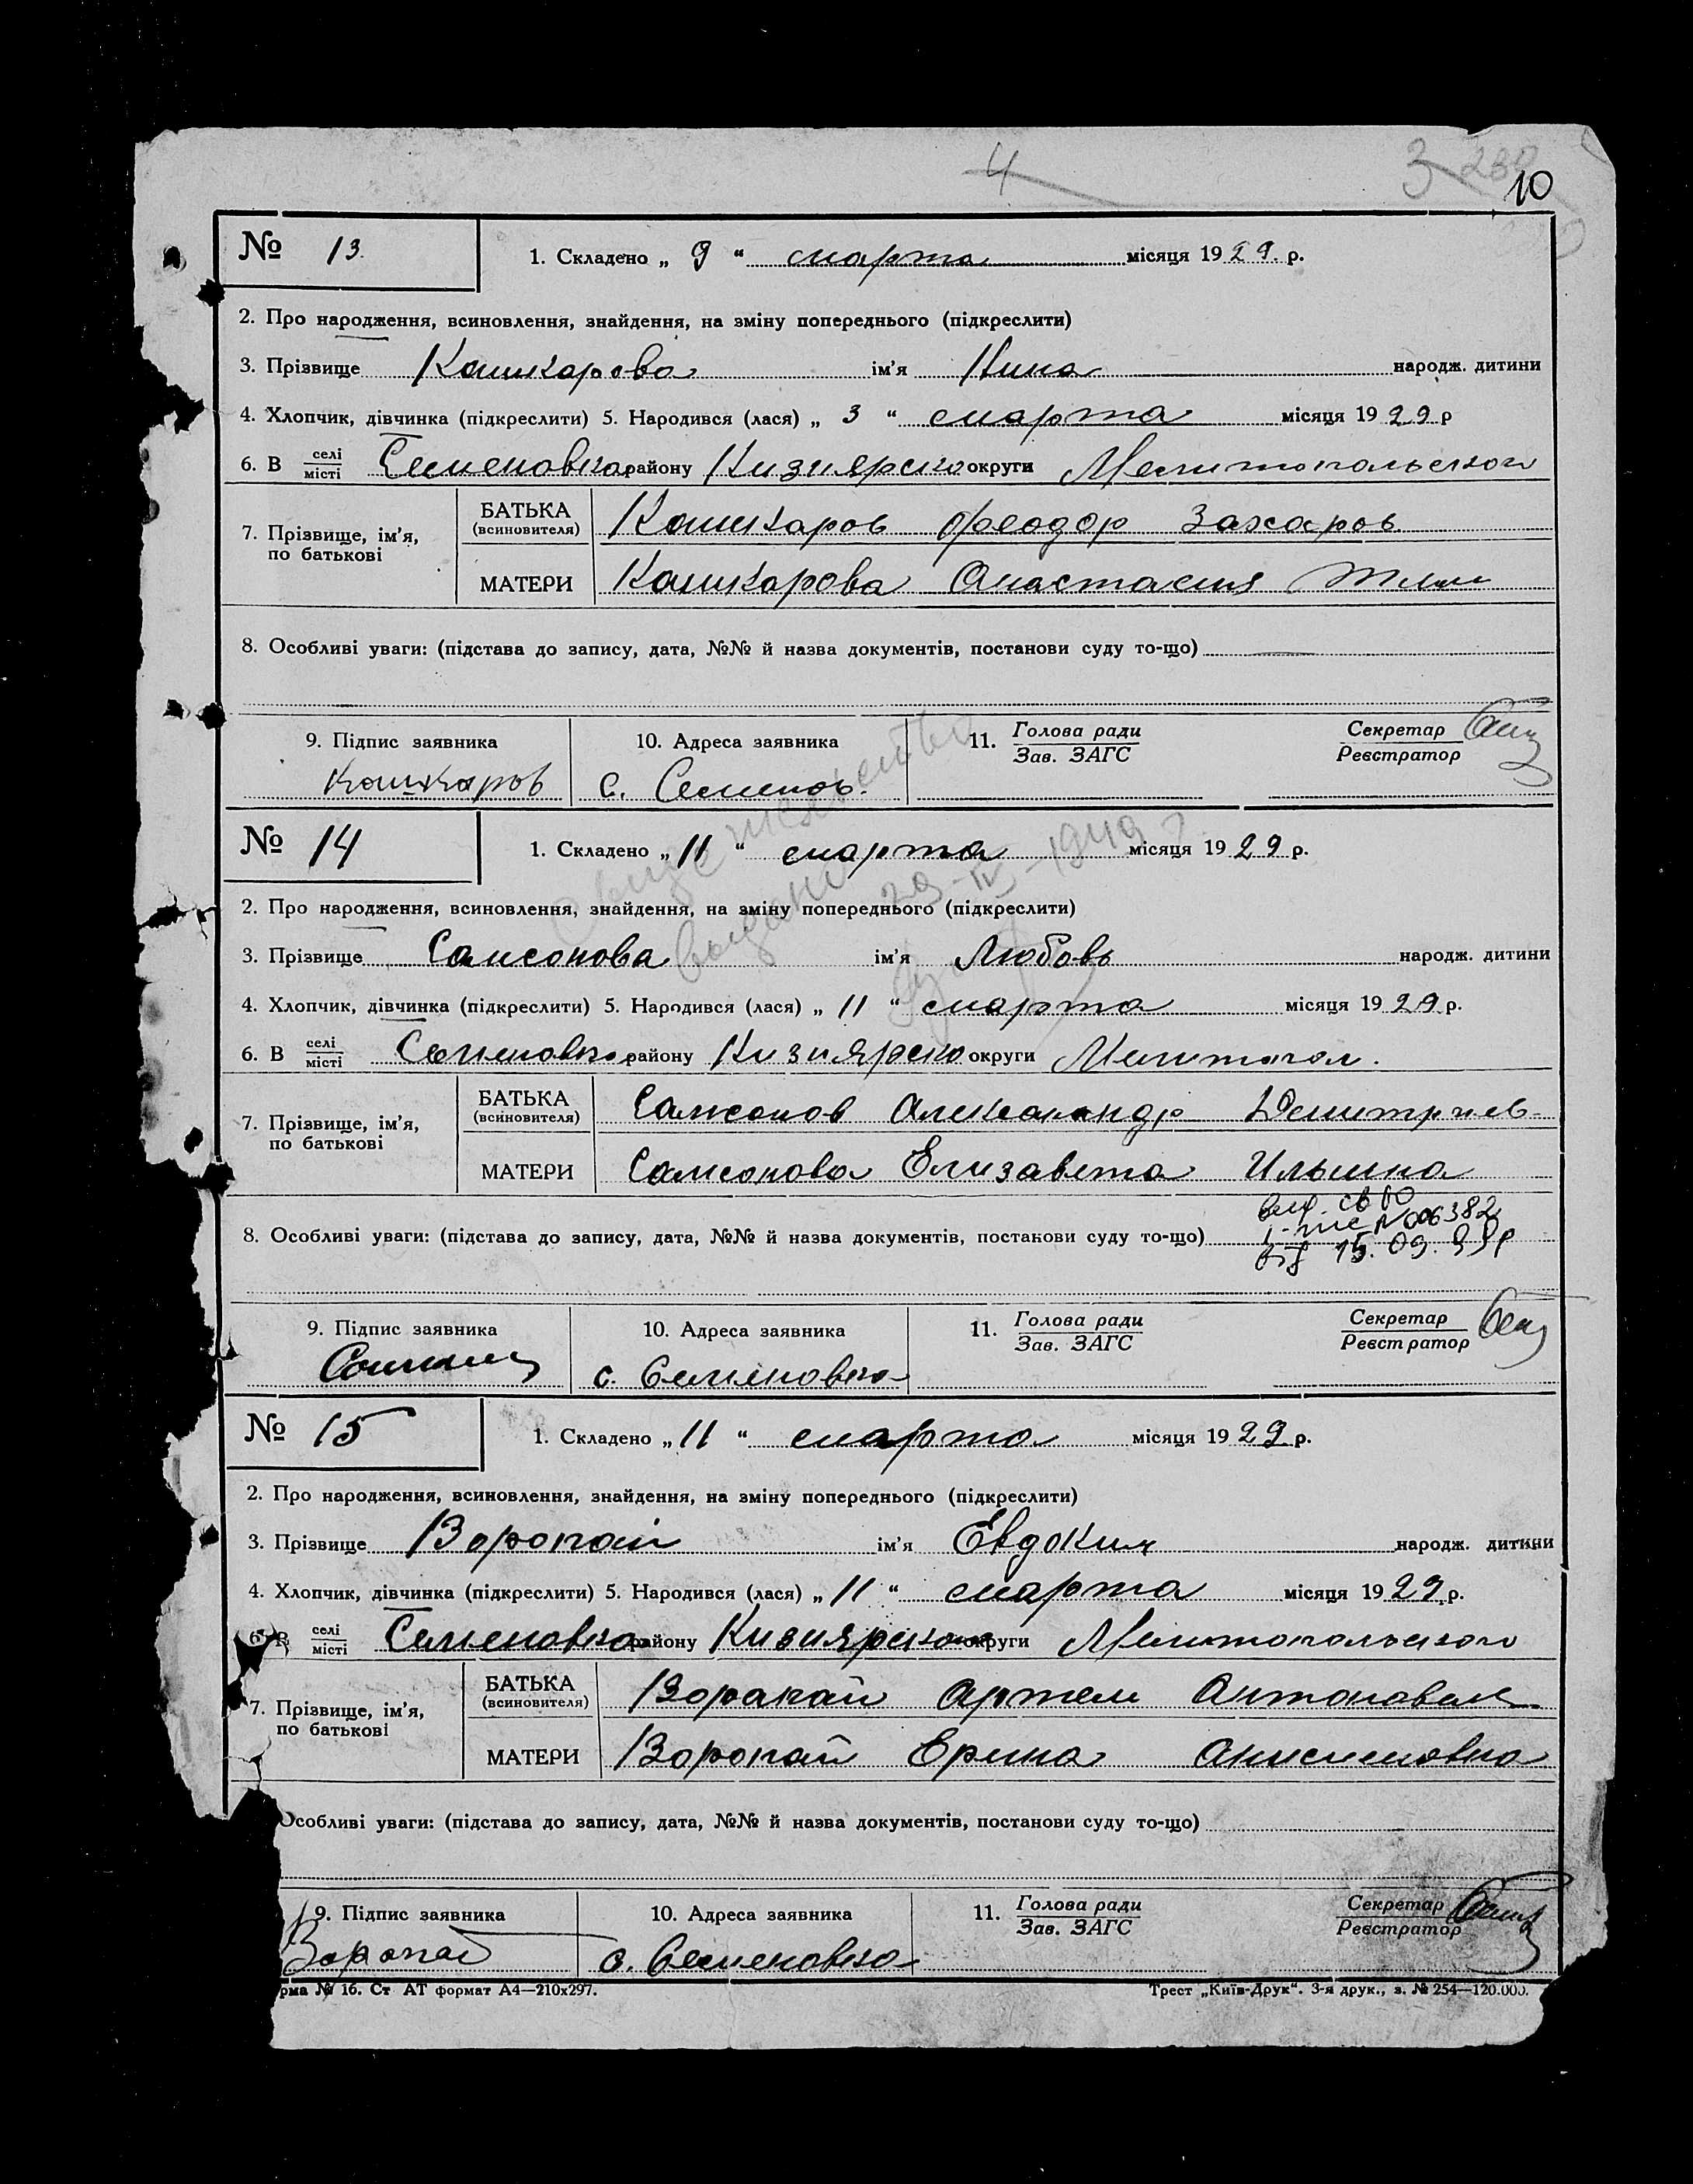 4
3 10
№ 13.
1. Складено „ 9 “ марта місяця 1929. р.
2. Про народження, всиновлення, знайдення, на зміну попереднього (підкреслити)
3. Прізвище Кашкарова ім'я Нина народж. дитини
4. Хлопчик, дівчинка (підкреслити) 5. Народився (лася) „ 3 “ марта місяця 1929 р
6. В селі місті Семеновка району Кизиярско округи Мелитопольской
7. Прізвище, ім'я, по батькові
БАТЬКА (всиновителя) Кашкаров Феодор Захаров
МАТЕРИ Кашкарова Анастасия
8. Особливі уваги: (підстава до запису, дата, №№ й назва документів, постанови суду то-що)
9. Підпис заявника 10. Адреса заявника 11. Голова ради Зав. ЗАГС Секретар Реєстратор
Кашкаров с. Семенов.
Свидетельство
выдано 29-IV-1949 г.
№ 14
1. Складено „ 11 “ марта місяця 1929 р.
2. Про народження, всиновлення, знайдення, на зміну попереднього (підкреслити)
3. Прізвище Самсонова ім'я Любовь народж. дитини
4. Хлопчик, дівчинка (підкреслити) 5. Народився (лася) „ 11 “ марта місяця 1929 р.
6. В селі місті Семеновка району Кизиярско округи Мелитопол.
7. Прізвище, ім'я, по батькові
БАТЬКА (всиновителя) Самсонов Александр Дмитриев
МАТЕРИ Самсонова Елизавета Ильина
8. Особливі уваги: (підстава до запису, дата, №№ й назва документів, постанови суду то-що)
вид. св во
№ 006382
від 15.09.99р
9. Підпис заявника 10. Адреса заявника 11. Голова ради Зав. ЗАГС Секретар Реєстратор
с. Семеновка
№ 15
1. Складено „ 11 “ марта місяця 1929. р.
2. Про народження, всиновлення, знайдення, на зміну попереднього (підкреслити)
3. Прізвище Воропай ім'я Евдоким народж. дитини
4. Хлопчик, дівчинка (підкреслити) 5. Народився (лася) „ 11 “ марта місяця 1929 р.
6. В селі місті Семеновка району Кизиярско округи Мелитопольской
7. Прізвище, ім'я, по батькові
БАТЬКА (всиновителя) Воропай Артем Антонович
МАТЕРИ Воропай Ерина Анисимовна
Особливі уваги: (підстава до запису, дата, №№ й назва документів, постанови суду то-що)
9. Підпис заявника 10. Адреса заявника 11. Голова ради Зав. ЗАГС Секретар Реєстратор
Воропай с. Семеновка
рма № 16. Ст АТ формат А4—210х297. Трест „Київ-Друк“. 3-я друк., з. № 254—120.000.